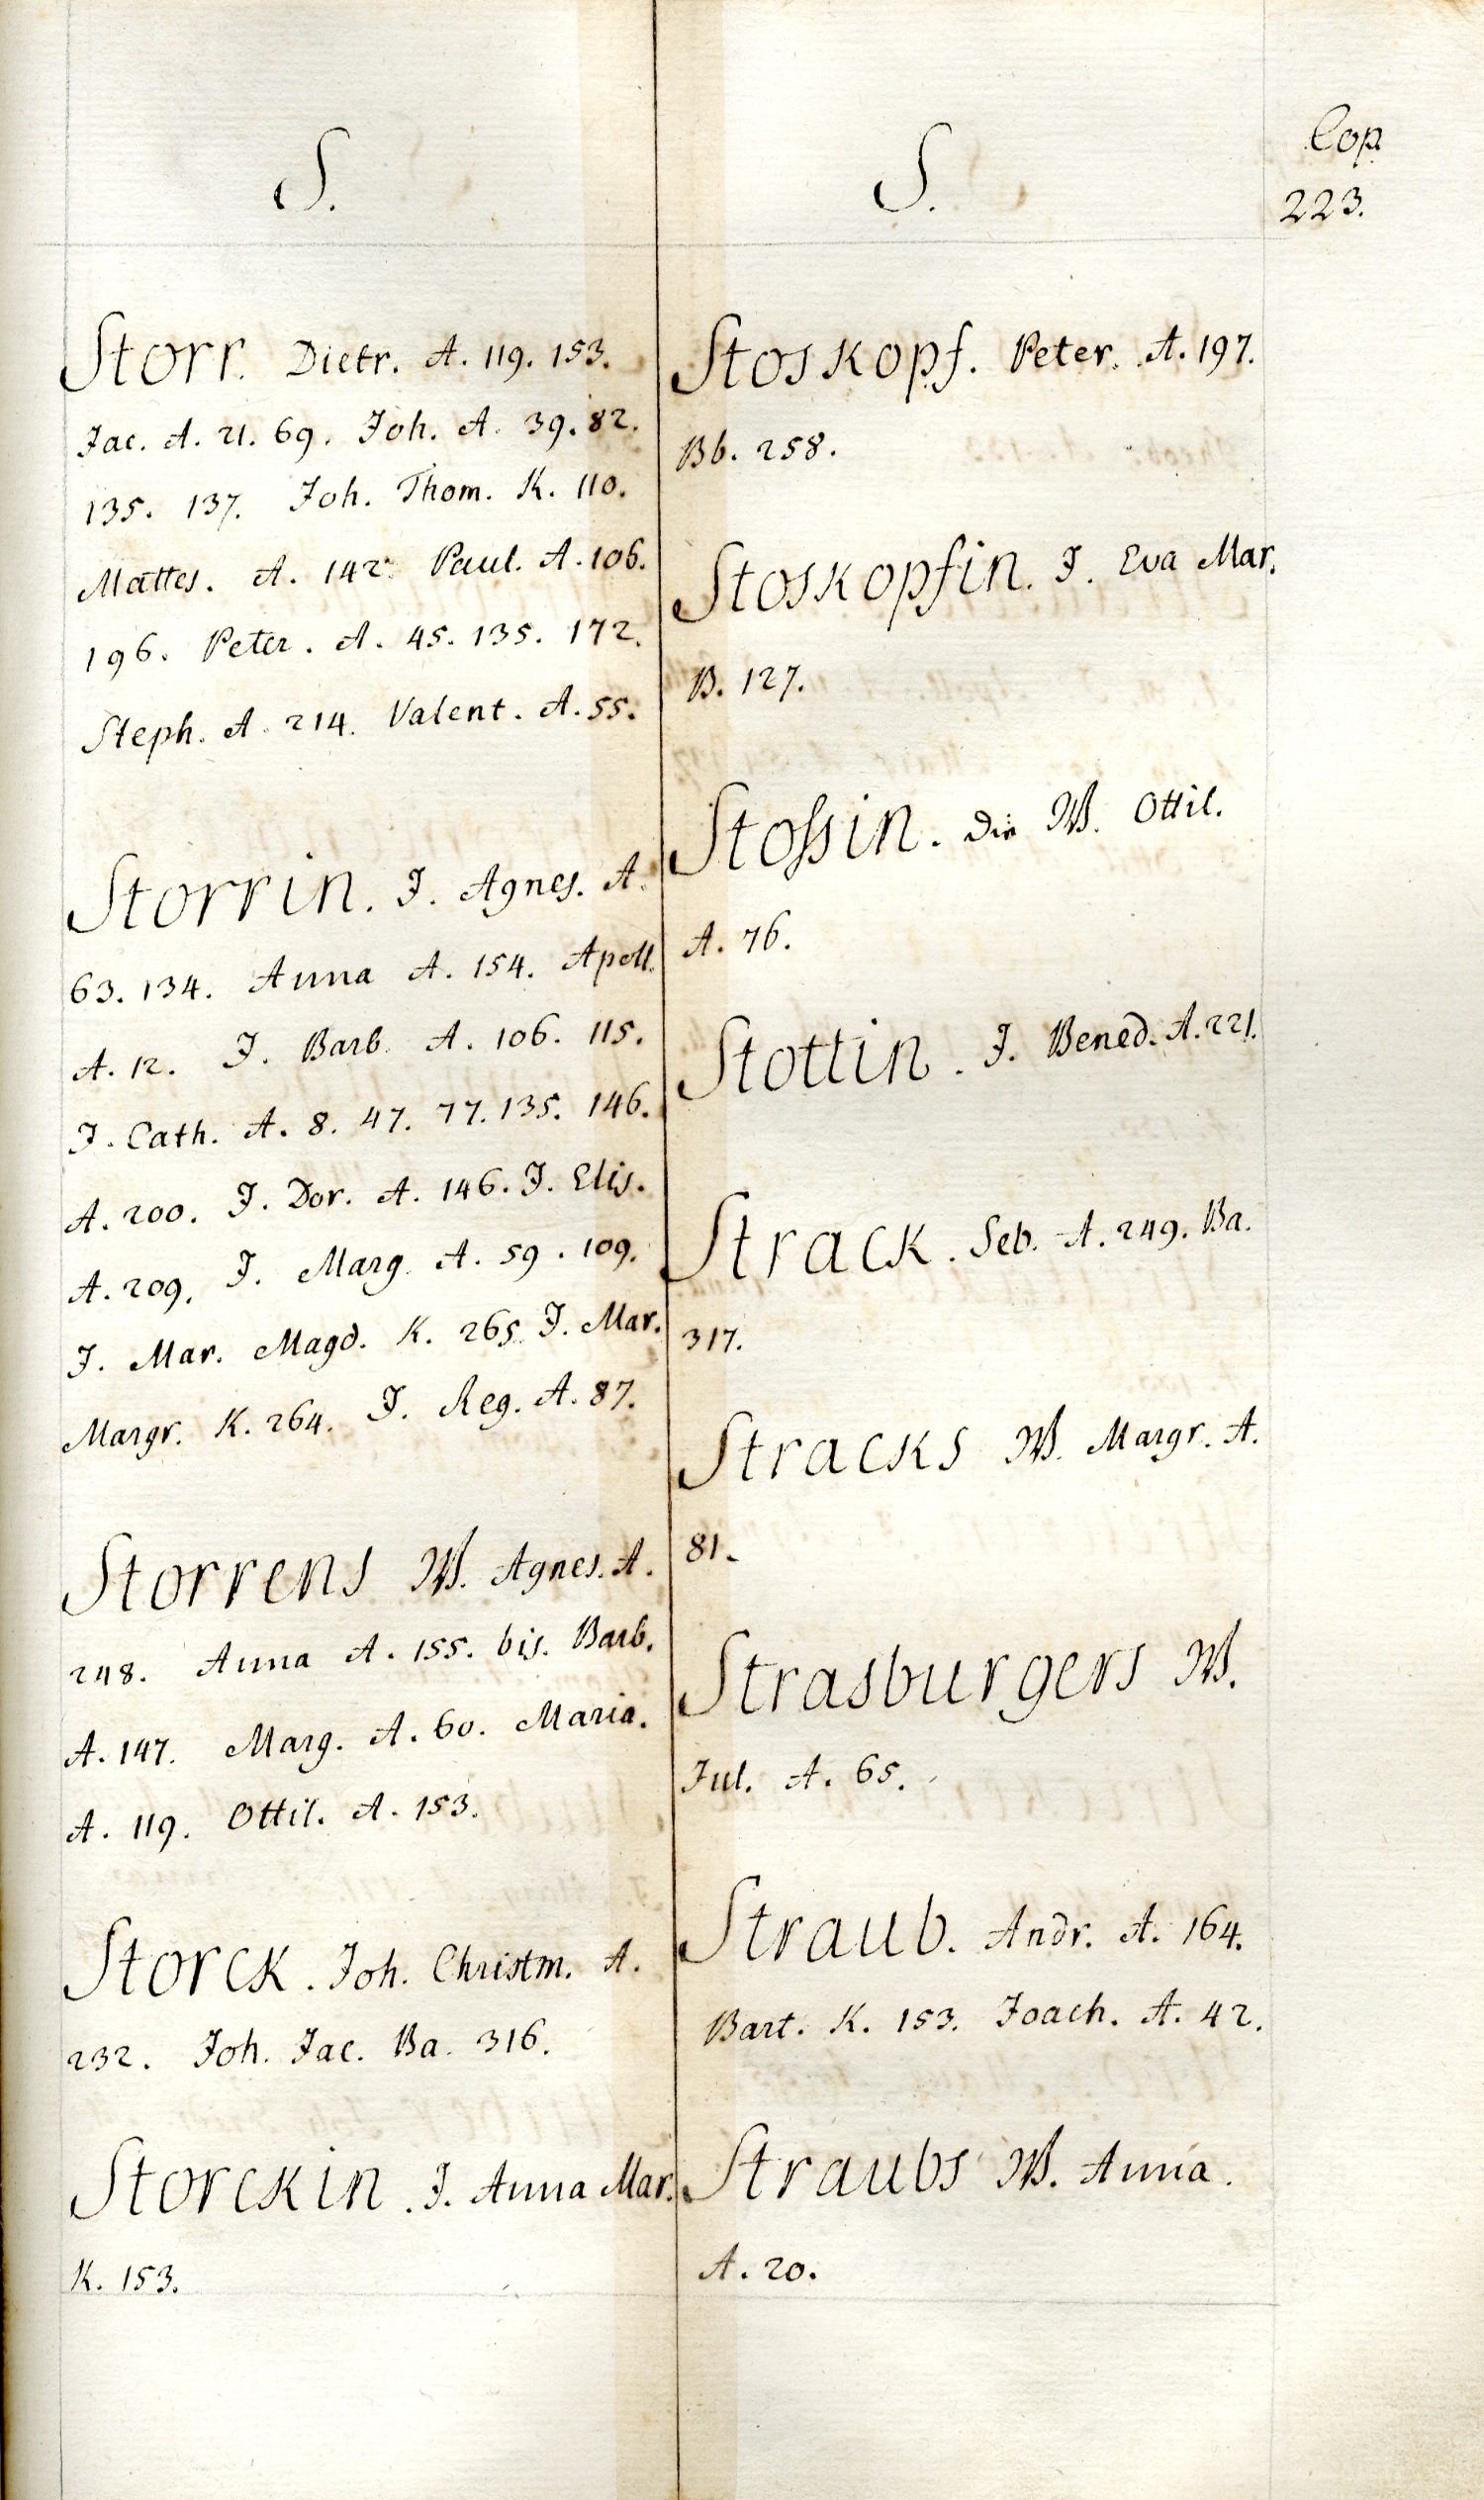 S.
Storr. Dietr. A. 119. 153.
Jac. A. 21. 69. Joh. A. 39. 82.
135. 137. Joh. Thom. K. 110.
Mattes. A. 142. Paul. A. 106.
196. Peter. A. 45. 135. 172.
Steph. A. 214. Valent. A. 55.
Storrin. J. Agnes. A.
63. 134. Anna A. 154. Apoll.
A. 12. J. Barb. A. 106. 115.
J. Cath. A. 8. 47. 77. 135. 146.
A. 200. J. Dor. A. 146. J. Elis.
A. 209. J. Marg. A. 59. 109.
J. Mar. Magd. K. 265. J. Mar.
Margr. K. 264. J. Reg. A. 87.
Storrens W. Agnes. A.
248. Anna A. 155. bis. Barb.
A. 147. Marg. A. 60. Maria.
A. 119. Ottil. A. 153.
Storck. Joh. Christm. A.
232. Joh. Jac. Ba. 316.
Storckin. J. Anna Mar.
K. 153.
S.
Stoskopf. Peter. A. 197.
Bb. 258.
Stoskopfin. J. Eva Mar.
B. 127.
Stossin. die W. Ottil.
A. 76.
Stottin. J. Bened. A. 221.
Strack. Seb. A. 249. Ba.
317.
Stracks W. Margr. A.
81.
Strasburgers W.
Jul. A. 65.
Straub. Andr. A. 164.
Bart. K. 153. Joach. A. 42.
Straubs W. Anna.
A. 20.
Cop.
223.